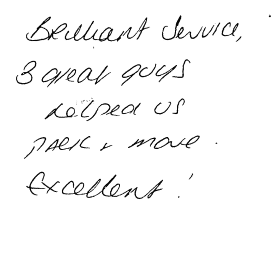 Brilliant Service,
3 great guys
helped us
pack & move.
Excellent!